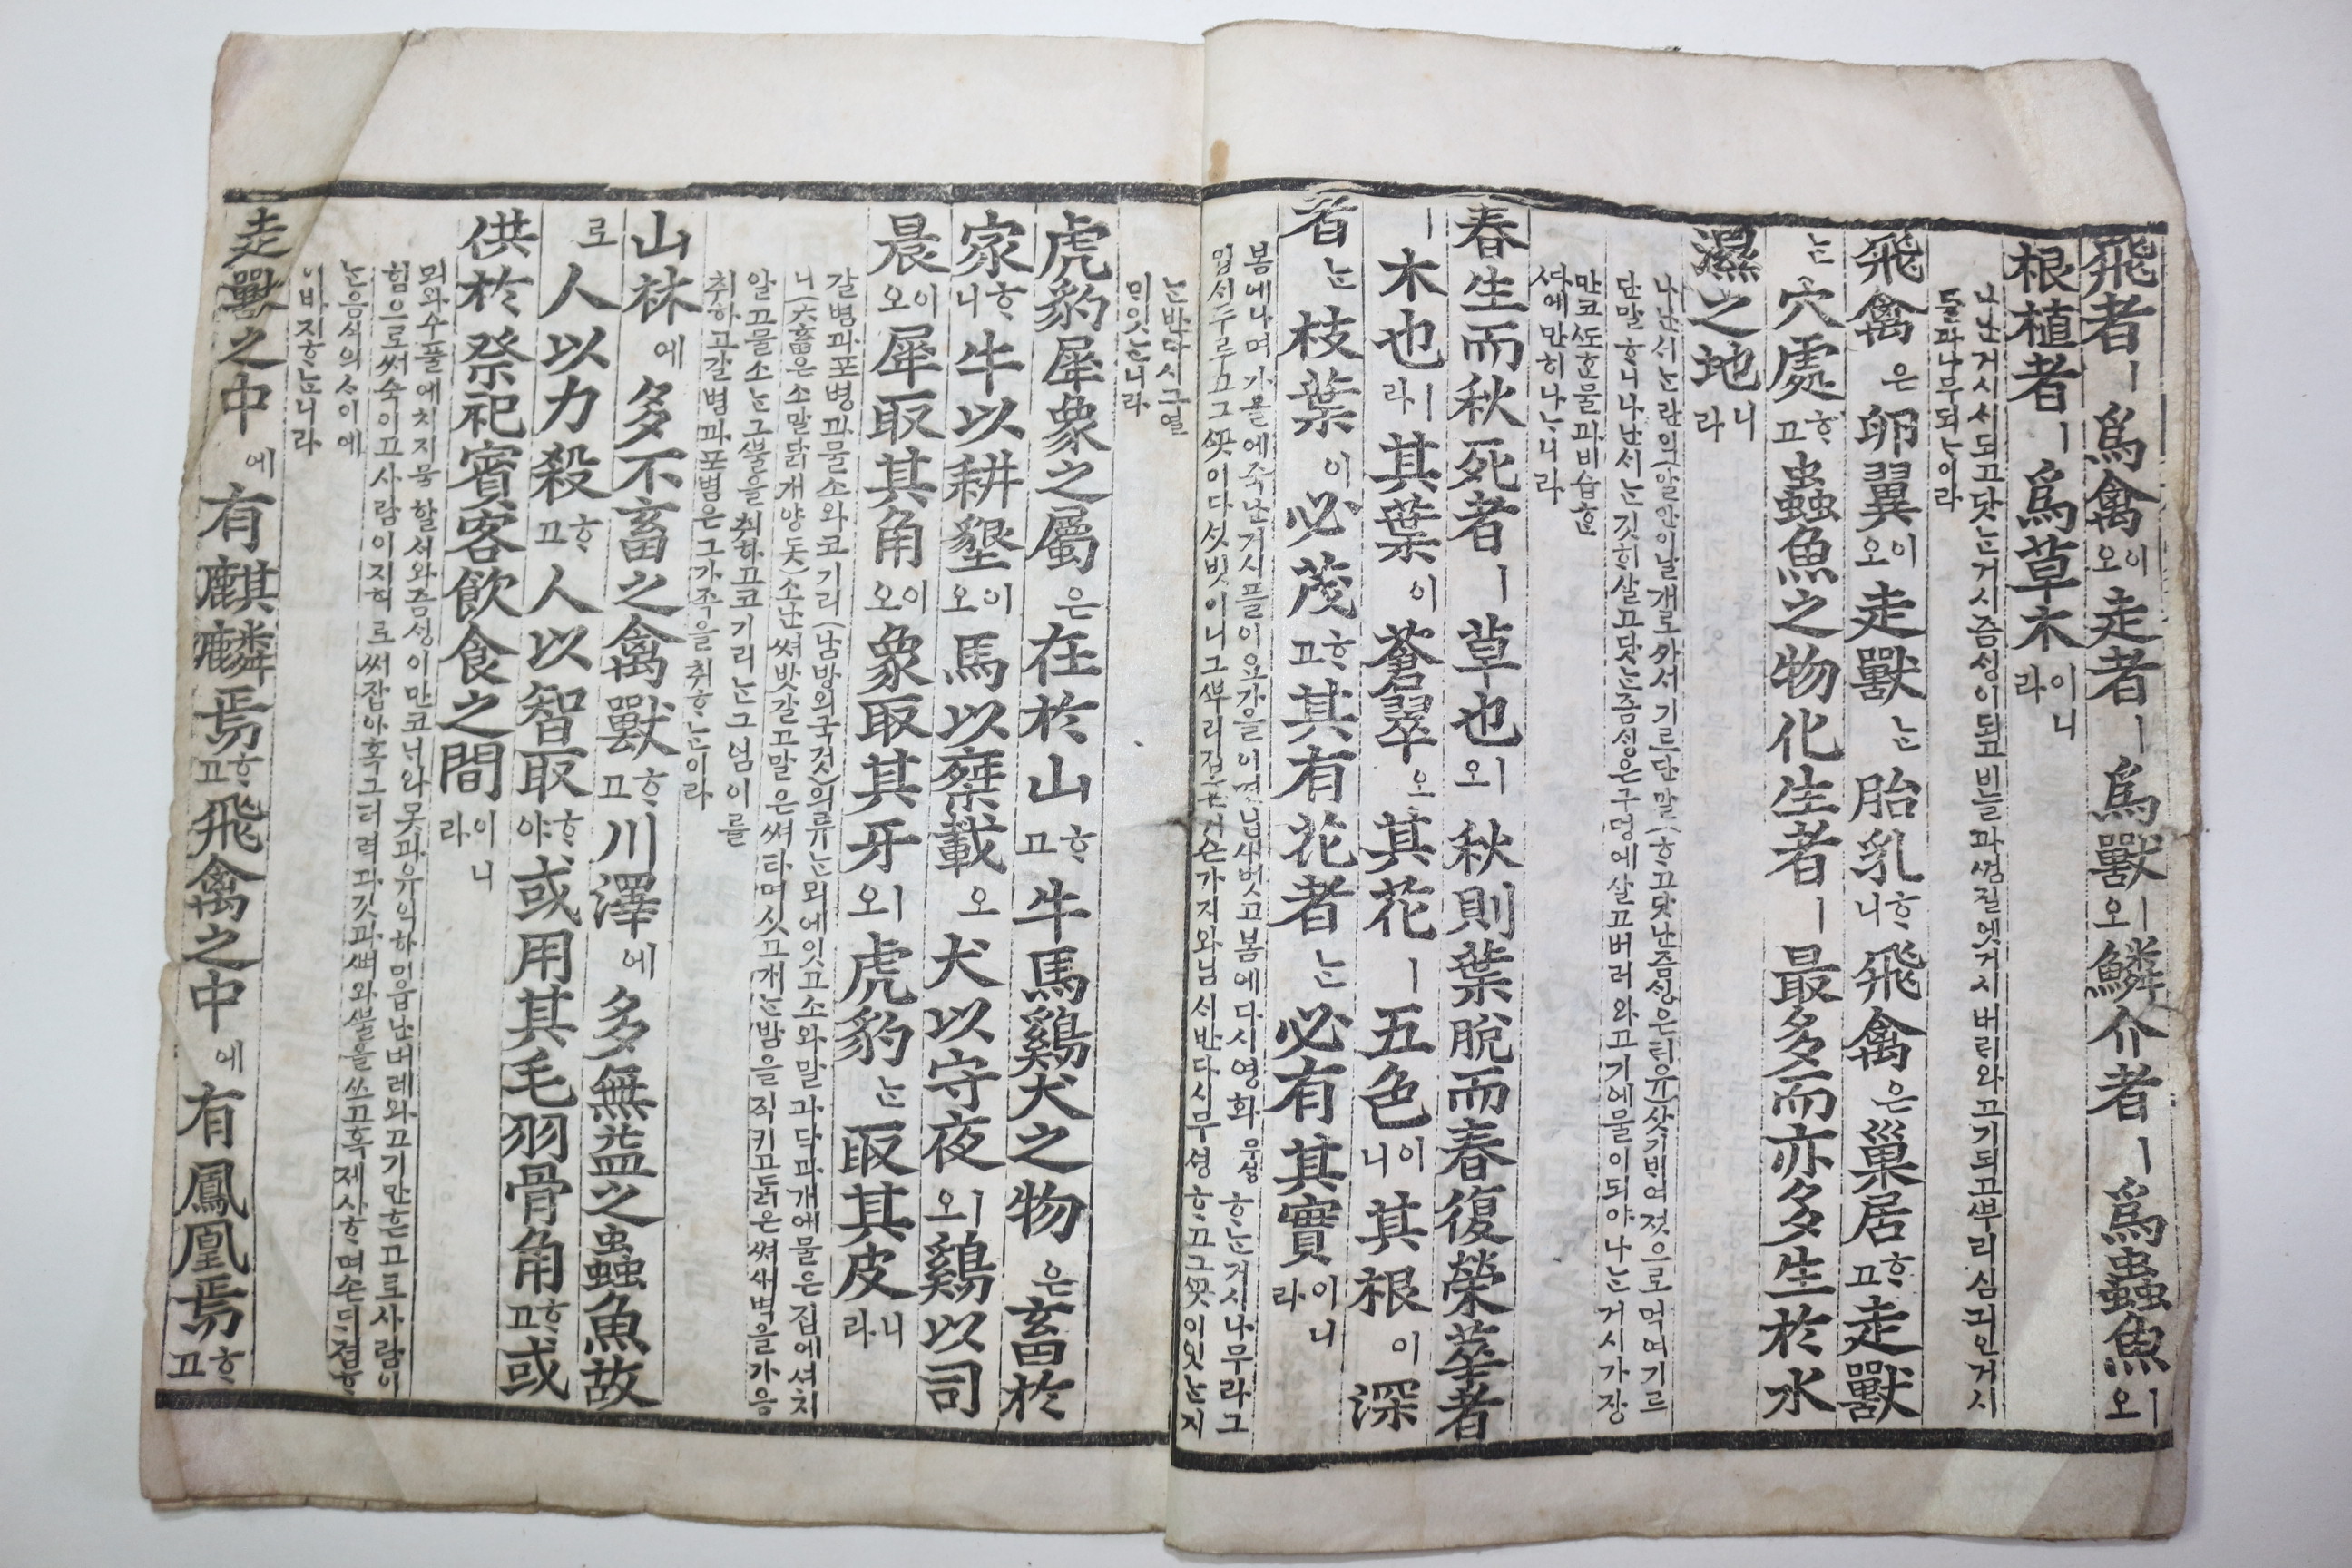 飛者ㅣ爲禽이오走者ㅣ爲獸ㅣ오鱗介者ㅣ爲蟲魚ㅣ오
根植者ㅣ爲草木이니라
나난거시ᄉᆡ되고닷ᄂᆞᆫ거시즘ᄉᆡᆼ이되고비늘과ᄭᅥᆸ질엣거시버러와고기되고ᄲᅮ리심긔인거시
풀과나무되ᄂᆞ이라
飛禽은卵翼이오走獸ᄂᆞᆫ胎乳ᄒᆞ니飛禽은巢居ᄒᆞ고走獸
ᄂᆞᆫ穴處ᄒᆞ고蟲魚之物化生者ㅣ最多而亦多生於水
濕之地니라
나난ᄉᆡᄂᆞᆫ란의(알안의)날개로ᄭᅡ셔기르단말(ᄒᆞ고닷난즘ᄉᆡᆼ은ᄐᆡ유(삿기ᄇᆡ여젓으로먹며기르
단말ᄒᆞ니나난ᄉᆡᄂᆞᆫ깃ᄒᆡ살고닷ᄂᆞᆫ즘ᄉᆡᆼ은구멍에살고버러와고기에물이되야나ᄂᆞᆫ거시가장
만코ᄯᅩᄒᆞᆫ물과비습ᄒᆞᆫ
ᄯᅡ에만히나ᄂᆞ니라
春生而秋死者ㅣ草也ㅣ오秋則葉脫而春復榮華者
ㅣ木也ㅣ라其葉이蒼翠오其花ㅣ五色이니其根이深
者ᄂᆞᆫ枝葉이必茂ᄒᆞ고其有花者ᄂᆞᆫ必有其實이니라
봄에나며가을에죽난거시플이요가을이면닙새벗고봄에다시영화무셩ᄒᆞᄂᆞᆫ거시나무라그
입시푸루고그ᄭᅩᆺ이다섯빗이니그ᄲᅮ리깁푼거슨가지와닙시반다시무셩ᄒᆞ고그ᄭᅩᆺ이잇ᄂᆞᆫ지
ᄂᆞᆫ반다시그열
ᄆᆡ잇ᄂᆞ니라
虎豹犀象之屬은在於山ᄒᆞ고牛馬鷄犬之物은畜於
家ᄒᆞ니牛以耕墾이오馬以乘載오犬以守夜ㅣ오鷄以司
晨이오犀取其角이오象取其牙ㅣ오虎豹ᄂᆞᆫ取其皮니라
갈범과포범과물소와코기리(남방외국것)의류ᄂᆞᆫ뫼에잇고소와말과닥과개에물은집에셔치
니(六畜은소말닭개양돗)소난ᄡᅥ밧갈고말은ᄡᅥ타며싯고개ᄂᆞᆫ밤을직키고닭은ᄡᅥ새벽을가음
알고물소ᄂᆞᆫ그ᄲᅮᆯ을취하고코기리ᄂᆞᆫ그엄이를
취하고갈범과포범은그가죽을취ᄒᆞᄂᆞᆫ이라
山林에多不畜之禽獸ᄒᆞ고川澤에多無益之蟲魚故
로人以力殺ᄒᆞ고人以智取ᄒᆞ야或用其毛羽骨角ᄒᆞ고或
供於祭祀賓客飮食之間이니라
뫼와수풀에치지물할ᄉᆡ와즘ᄉᆡᆼ이만코ᄂᆡ와못과유익하미읍난버레와고기만흔고로사람이
힘으로써숙이고사람이지혀로써잡아혹그터럭과깃과ᄲᅧ와ᄲᅮᆯ을쓰고혹졔사ᄒᆞ며손ᄃᆡ졉ᄒᆞ
ᄂᆞᆫ음식의ᄉᆞ이에
이바지ᄒᆞᄂᆞ니라
走獸之中에有麒麟焉ᄒᆞ고飛禽之中에有鳳凰焉ᄒᆞ고